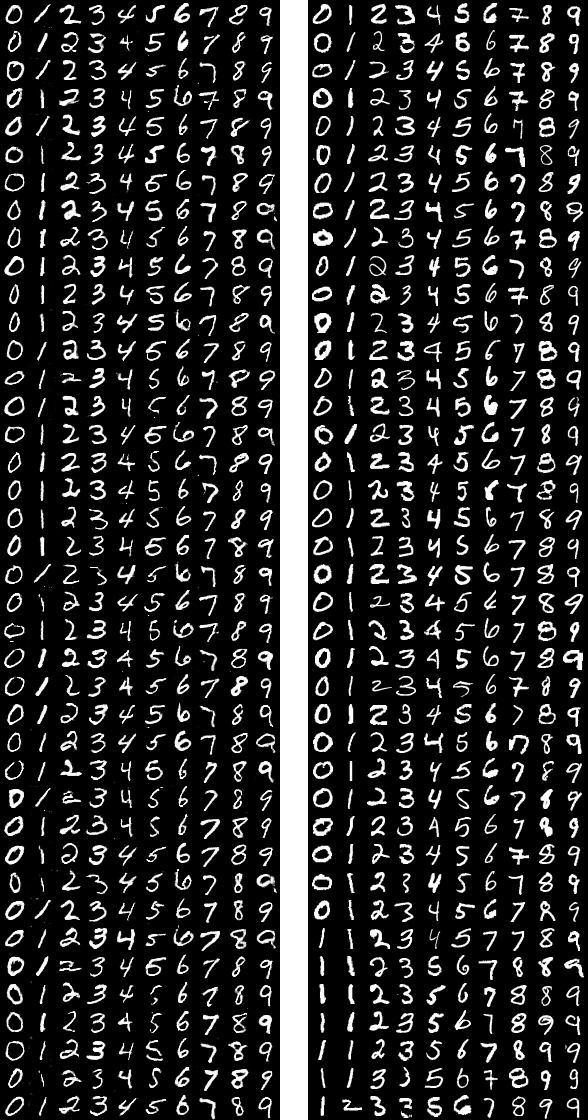 0 1 2 3 4 5 6 7 8 9
0 1 2 3 4 5 6 7 8 9
0 1 2 3 4 5 6 7 8 9
0 1 2 3 4 5 6 7 8 9
0 1 2 3 4 5 6 7 8 9
0 1 2 3 4 5 6 7 8 9
0 1 2 3 4 5 6 7 8 9
0 1 2 3 4 5 6 7 8 9
0 1 2 3 4 5 6 7 8 9
0 1 2 3 4 5 6 7 8 9
0 1 2 3 4 5 6 7 8 9
0 1 2 3 4 5 6 7 8 9
0 1 2 3 4 5 6 7 8 9
0 1 2 3 4 5 6 7 8 9
0 1 2 3 4 5 6 7 8 9
0 1 2 3 4 5 6 7 8 9
0 1 2 3 4 5 6 7 8 9
0 1 2 3 4 5 6 7 8 9
0 1 2 3 4 5 6 7 8 9
0 1 2 3 4 5 6 7 8 9
0 1 2 3 4 5 6 7 8 9
0 1 2 3 4 5 6 7 8 9
0 1 2 3 4 5 6 7 8 9
0 1 2 3 4 5 6 7 8 9
0 1 2 3 4 5 6 7 8 9
0 1 2 3 4 5 6 7 8 9
0 1 2 3 4 5 6 7 8 9
0 1 2 3 4 5 6 7 8 9
0 1 2 3 4 5 6 7 8 9
0 1 2 3 4 5 6 7 8 9
0 1 2 3 4 5 6 7 8 9
0 1 2 3 4 5 6 7 8 9
0 1 2 3 4 5 6 7 8 9
0 1 2 3 4 5 6 7 8 9
0 1 2 3 4 5 6 7 8 9
0 1 2 3 4 5 6 7 8 9
0 1 2 3 4 5 6 7 8 9
0 1 2 3 4 5 6 7 8 9
0 1 2 3 4 5 6 7 8 9
0 1 2 3 4 5 6 7 8 9
0 1 2 3 4 5 6 7 8 9
0 1 2 3 4 5 6 7 8 9
0 1 2 3 4 5 6 7 8 9
0 1 2 3 4 5 6 7 8 9
0 1 2 3 4 5 6 7 8 9
0 1 2 3 4 5 6 7 8 9
0 1 2 3 4 5 6 7 8 9
0 1 2 3 4 5 6 7 8 9
0 1 2 3 4 5 6 7 8 9
0 1 2 3 4 5 6 7 8 9
0 1 2 3 4 5 6 7 8 9
0 1 2 3 4 5 6 7 8 9
0 1 2 3 4 5 6 7 8 9
0 1 2 3 4 5 6 7 8 9
0 1 2 3 4 5 6 7 8 9
0 1 2 3 4 5 6 7 8 9
0 1 2 3 4 5 6 7 8 9
0 1 2 3 4 5 6 7 8 9
0 1 2 3 4 5 6 7 8 9
0 1 2 3 4 5 6 7 8 9
0 1 2 3 4 5 6 7 8 9
0 1 2 3 4 5 6 7 8 9
0 1 2 3 4 5 6 7 8 9
0 1 2 3 4 5 6 7 8 9
0 1 2 3 4 5 6 7 8 9
0 1 2 3 4 5 6 7 8 9
0 1 2 3 4 5 6 7 8 9
0 1 2 3 4 5 6 7 8 9
0 1 2 3 4 5 6 7 8 9
0 1 2 3 4 5 6 7 8 9
0 1 2 3 4 5 6 7 8 9
0 1 2 3 4 5 6 7 8 9
0 1 2 3 4 5 6 7 8 9
1 1 2 3 4 5 7 7 8 9
1 1 2 3 5 6 7 8 8 9
1 1 2 3 5 6 7 8 8 9
1 1 2 3 5 6 7 8 9 9
1 1 2 3 5 6 7 8 9 9
1 1 3 3 5 6 7 8 9 9
1 2 3 3 5 6 7 8 9 9